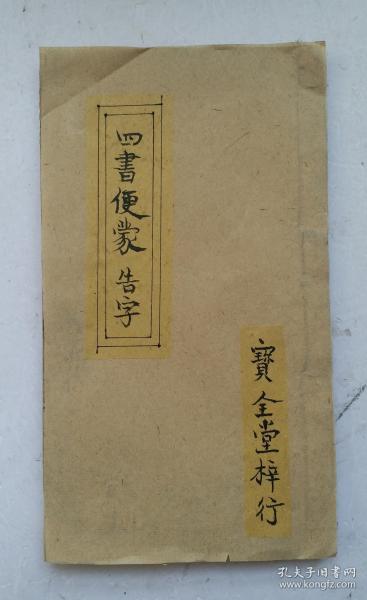 四書便蒙 告字
寳全堂梓行
孔夫子旧书网
www.kongfz.com